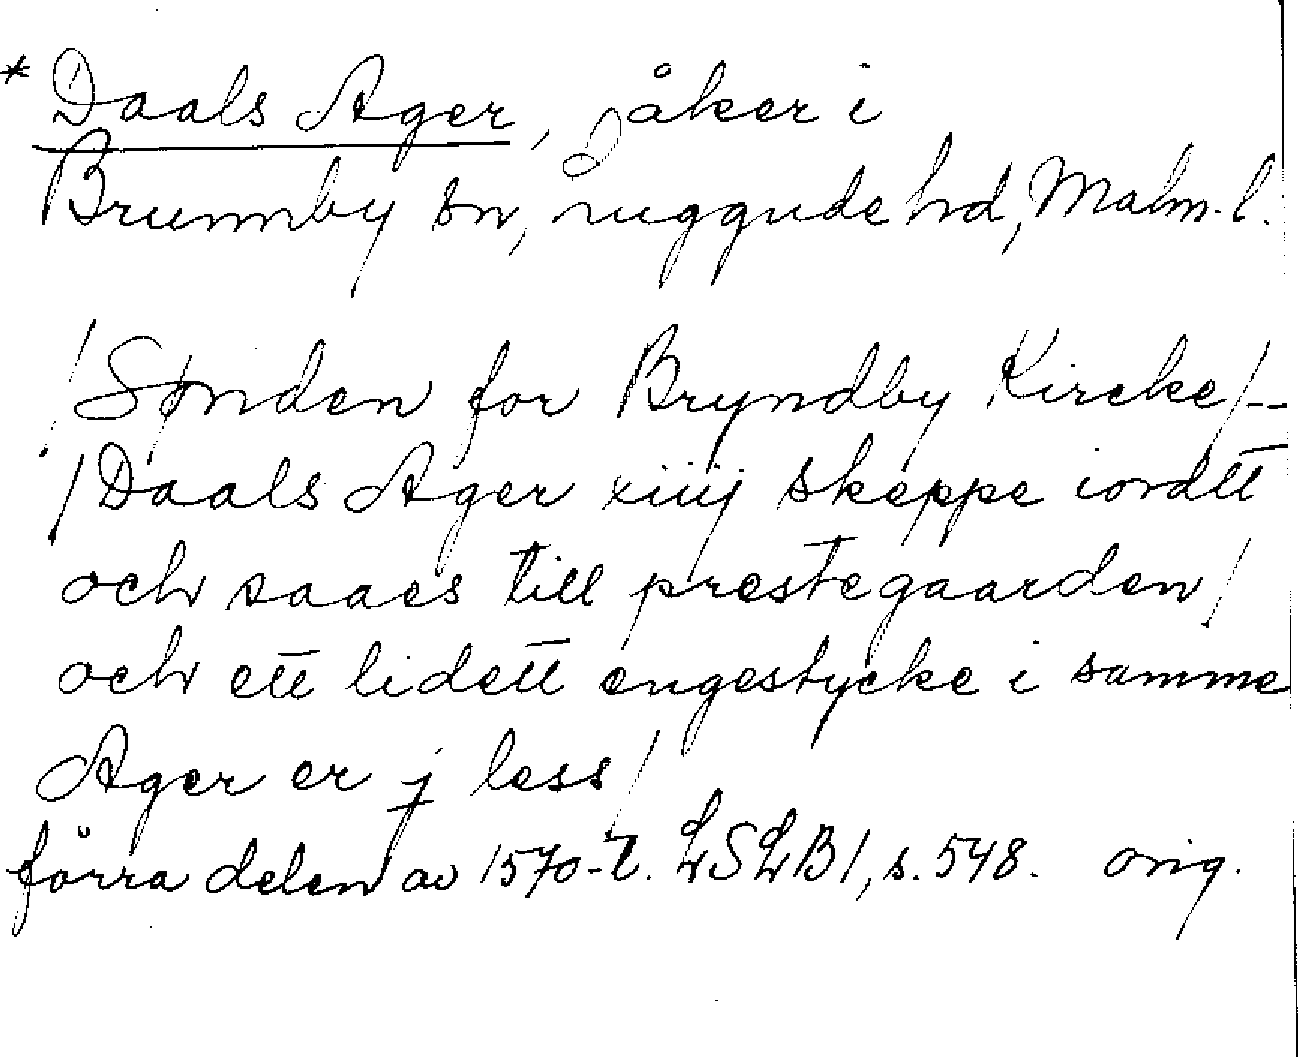 * Daals Ager, åker i
Brunnby sn, Luggude hd, Malm. l.
/Sønden for Bryndby Kircke/--
/Daals Ager xiiij skeppe iordtt
och saaes till prestegaarden/
och ett lidett engestycke i samme
Ager er j less/
förra delen av 1570-t. LSLB 1, s. 548. orig.